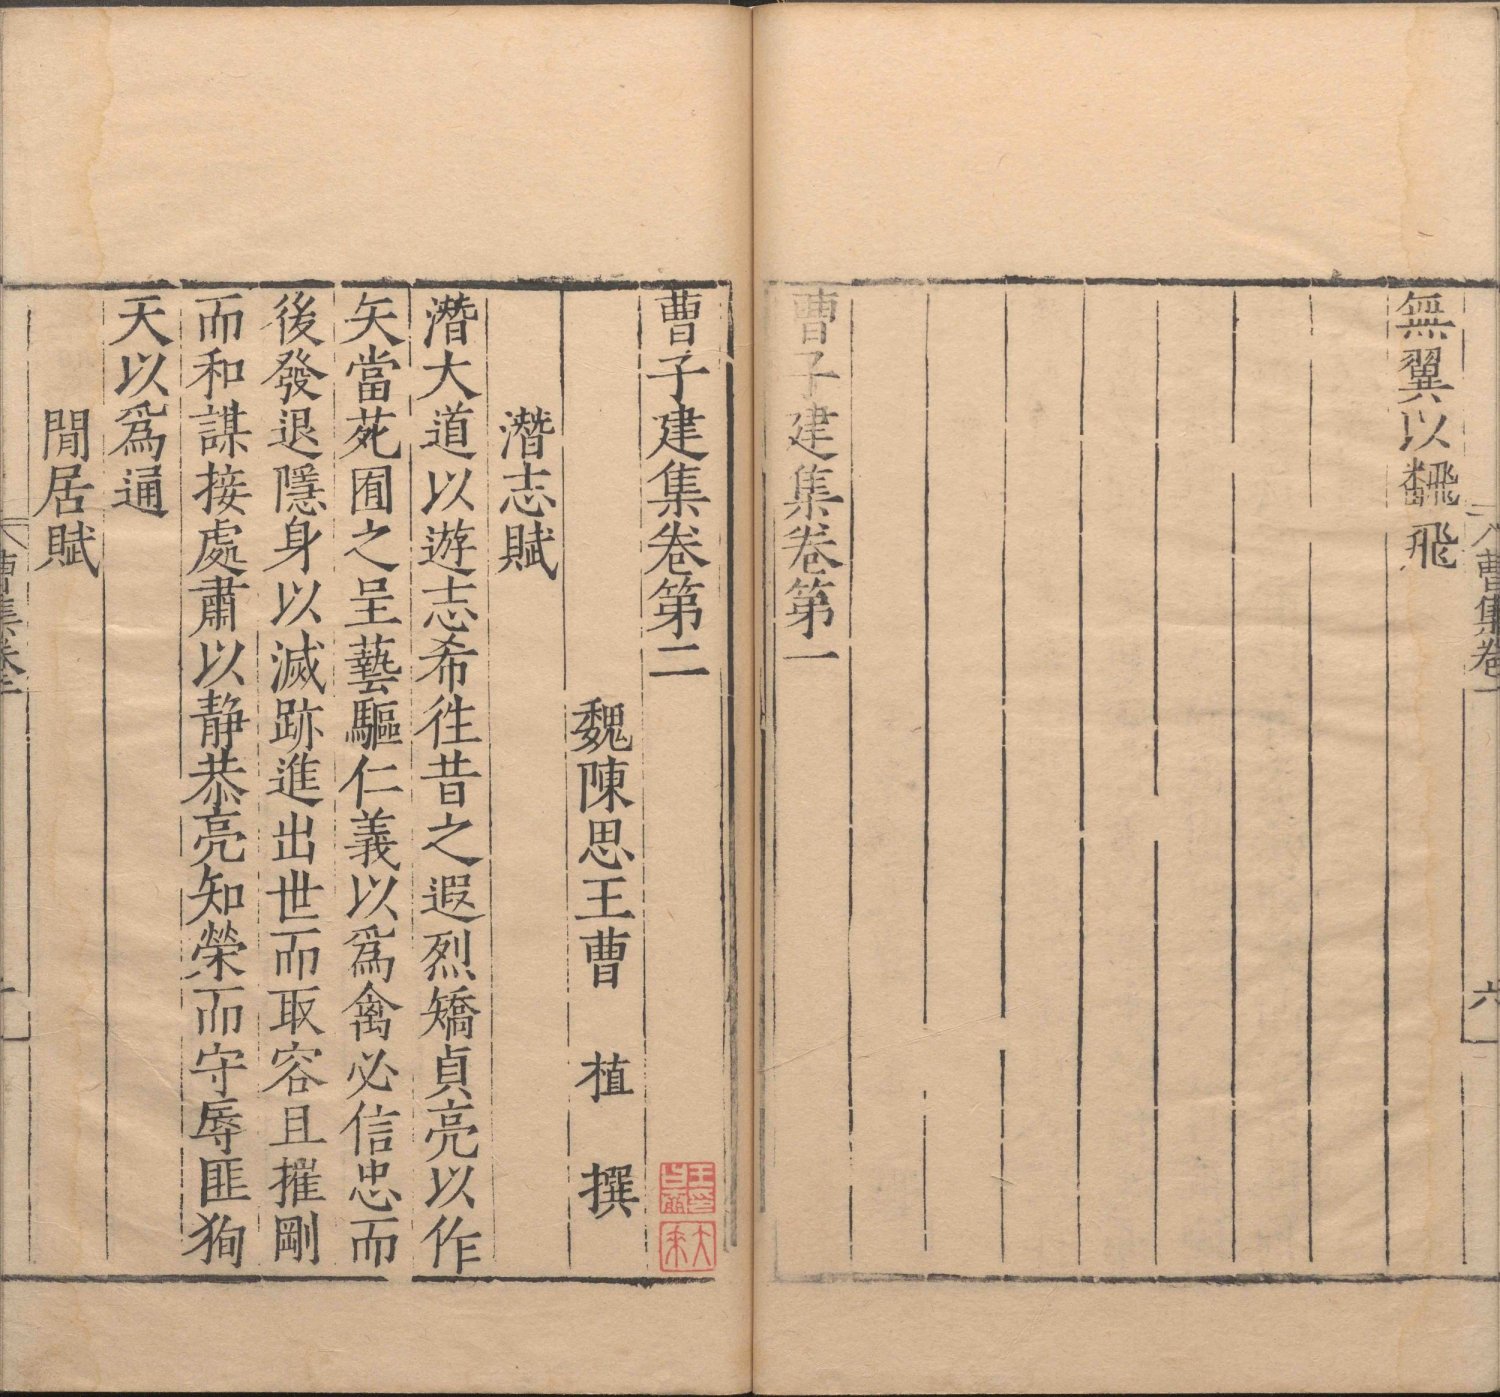 曹集卷一
六
無翼以飜飛
曹子建集卷第一
曹子建集卷第二
魏陳思王曹植撰
潛志賦
潛大道以遊志希徃昔之遐烈矯貞亮以作
矢當苑囿之呈藝驅仁義以爲禽必信忠而
後發退隱身以滅跡進出世而取容且摧剛
而和謀接處肅以靜恭亮知榮而守辱匪狥
天以爲通
閒居賦
曹集卷二